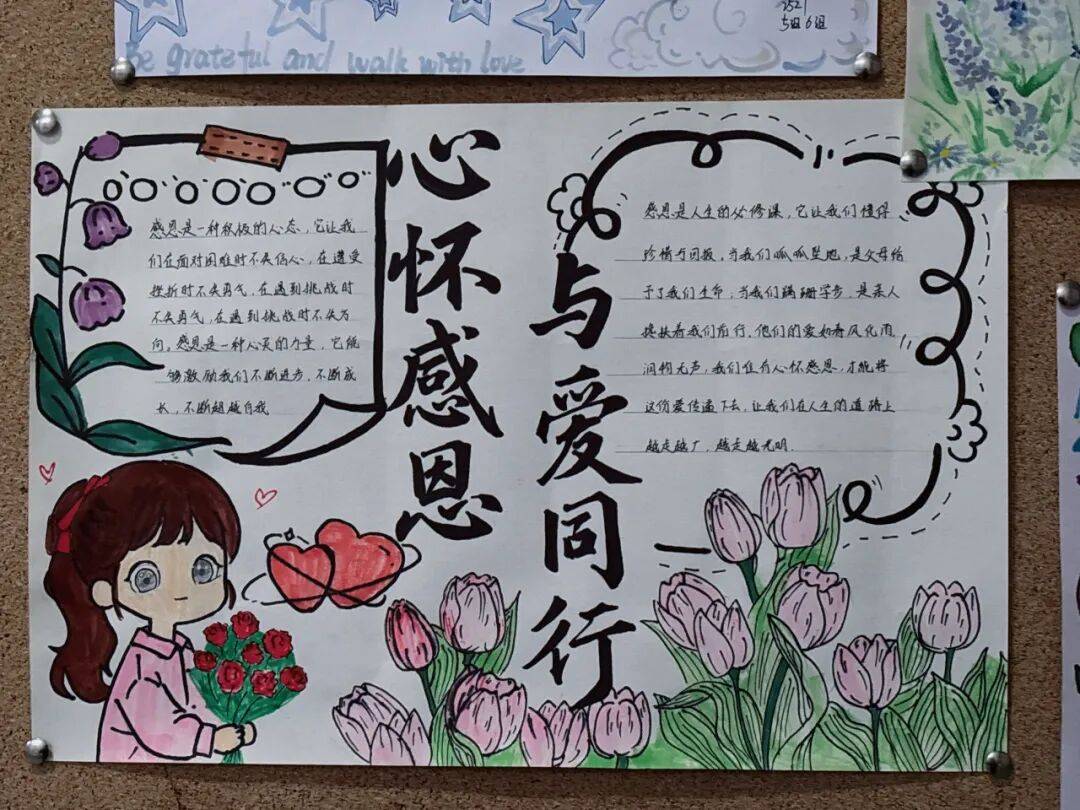 Be grateful and walk with love
252
5组6组
心怀感恩
与爱同行
感恩是一种积极的心态，它让我
们在面对困难时不失信心，在遭受
挫折时不失勇气，在遇到挑战时
不失勇气，在遇到挑战时不失方
向。感恩是一种心灵的力量，它能
够激励我们不断进步，不断成
长，不断超越自我
感恩是人生的必修课，它让我们懂得
珍惜与回报，当我们呱呱坠地，是父母给
予了我们生命，当我们蹒跚学步，是亲人
搀扶着我们前行，他们的爱如春风化雨
润物无声，我们唯有心怀感恩，才能将
这份爱传递下去，让我们在人生的道路上
越走越广，越走越光明